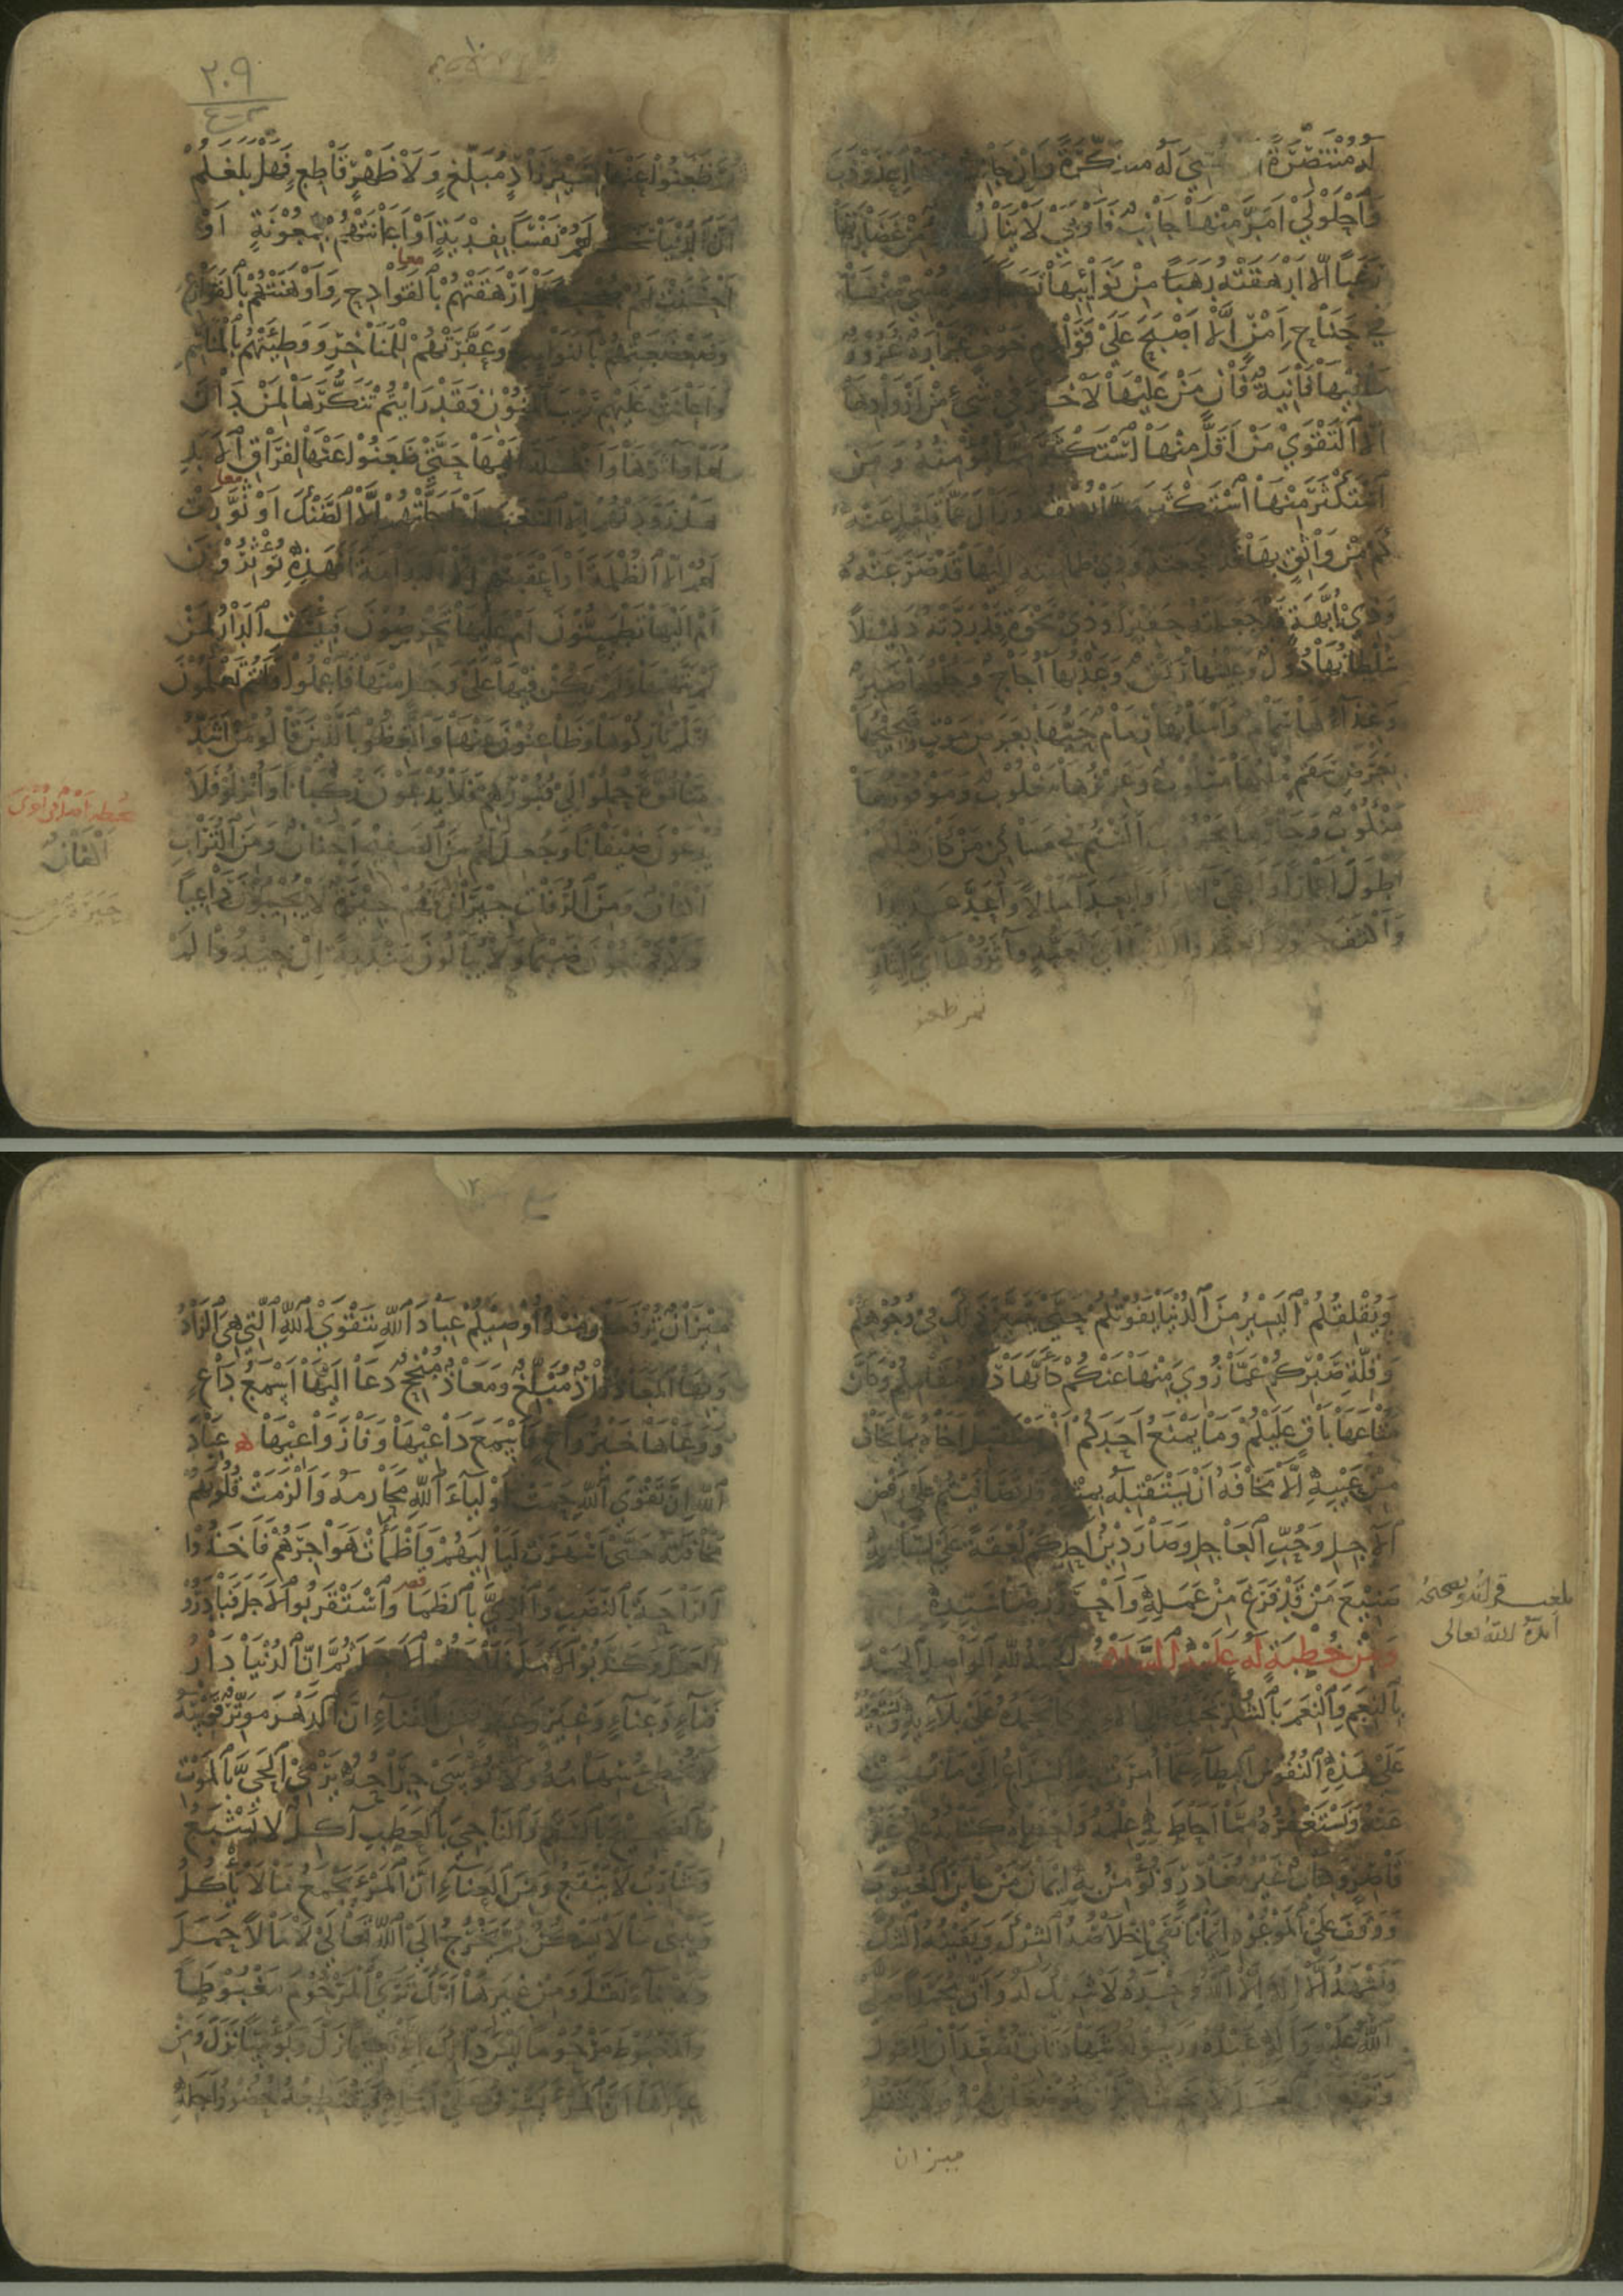 له منتصرة ان تمسي له متنكرة وان جانب منها اعذوذب
واحلولى امر منها جانب فاوبى لا ينال امرؤ من غضارتها
رغبا الا ارهقته من نوائبها تعبا ولا يمسي منها
في جناح امن الا اصبح على قوادم خوف غرارة غرور
ما فيها فانية فان من عليها لا خير في شيء من ازوادها
الا التقوى من اقل منها استكثر مما يؤمنه ومن
استكثر منها استكثر مما يوبقه وزال عما قليل عنه
كم من واثق بها قد فجعته وذي طمأنينة اليها قد صرعته
وذي ابهة قد جعلته حقيرا وذي نخوة قد ردته ذليلا
سلطانها دول وعيشها رنق وعذبها اجاج وحلوها صبر
وغذاؤها سمام واسبابها رمام حيها بعرض موت وصحيحها
بعرض سقم ملكها مسلوب وعزيزها مغلوب وموفورها
منكوب وجارها محروب الستم في مساكن من كان قبلكم
اطول اعمارا وابقى آثارا وابعد آمالا واعد عديدا
واكثف جنودا تعبدوا للدنيا اي تعبد وآثروها اي ايثار
ثم ظعنو
٢٠٩
ثم ظعنوا عنها بغير زاد مبلغ ولا ظهر قاطع فهل بلغكم
ان الدنيا سخت لهم نفسا بفدية او اعانتهم بمعونة او
معا
احسنت لهم صحبة بل ارهقتهم بالقوادح واوهنتهم بالقوارع
وضعضعتهم بالنوائب وعفرتهم للمناخر ووطئتهم بالمناسم
واعانت عليهم ريب المنون فقد رأيتم تنكرها لمن دان
لها وآثرها واخلد اليها حتى ظعنوا عنها لفراق الابد
معا
هل زودتهم الا السغب او احلتهم الا الضنك او نورت
لهم الا الظلمة او اعقبتهم الا الندامة افهذه تؤثرون
ام اليها تطمئنون ام عليها تحرصون فبئست الدار لمن
لم يتهمها ولم يكن فيها على وجل منها فاعلموا وانتم تعلمون
بانكم تاركوها وظاعنون عنها واتعظوا بالذين قالوا من اشد
منا قوة حملوا الى قبورهم فلا يدعون ركبانا وانزلوا فلا
يدعون ضيفانا وجعل لهم من الصفيح اجنان ومن التراب
اكفان ومن الرفات جيران فهم جيرة لا يجيبون داعيا
ولا يمنعون ضيما ولا يبالون مندبة ان جيدوا لم
اكفان
جيرة
ويقلقكم اليسير من الدنيا يفوتكم حتى يتبين ذلك في وجوهكم
وقلة صبركم عما زوي منها عنكم كانها دار مقامكم وكان
متاعها باق عليكم وما يمنع احدكم ان يستقبل اخاه بما يخاف
من عيبه الا مخافة ان يستقبله بمثله قد تصافيتم على رفض
الآجل وحب العاجل وصار دين احدكم لعقة على لسانه
صنيع من قد فرغ من عمله واحرز رضا سيده
ومن خطبة له عليه السلام الحمد لله الواصل الحمد
بالنعم والنعم بالشكر نحمده على آلائه كما نحمده على بلائه ونستعينه
على هذه النفوس البطاء عما امرت به السراع الى ما نهيت
عنه ونستغفره مما احاط به علمه واحصاه كتابه علم غير
قاصر وكتاب غير مغادر ونؤمن به ايمان من عاين الغيوب
ووقف على الموعود ايمانا نفى اخلاصه الشرك ويقينه الشك
ونشهد ان لا اله الا الله وحده لا شريك له وان محمدا صلى
الله عليه وآله عبده ورسوله شهادتين تصعدان القول
وترفعان العمل لا يخف ميزان توضعان فيه ولا يثقل
ميزان
بلغت قراءة وتصحيحا
ايده الله تعالى
١٢
ميزان ترفعان منه اوصيكم عباد الله بتقوى الله التي هي الزاد
وبها المعاذ زاد مبلغ ومعاذ منجح دعا اليها اسمع داع
ووعاها خير واع فاسمع داعيها وفاز واعيها عباد
الله ان تقوى الله حمت اولياء الله محارمه والزمت قلوبهم
مخافته حتى اسهرت لياليهم واظمأت هواجرهم فاخذوا
الراحة بالنصب والري بالظمأ واستقربوا الاجل فبادروا
العمل وكذبوا الامل فلاحظوا الاجل ثم ان الدنيا دار
فناء وعناء وغير وعبر فمن الفناء ان الدهر موتر قوسه
لا تخطئ سهامه ولا تؤسى جراحه يرمي الحي بالموت
والصحيح بالسقم والناجي بالعطب آكل لا يشبع
وشارب لا ينقع ومن العناء ان المرء يجمع ما لا يأكل
ويبني ما لا يسكن ثم يخرج الى الله تعالى لا مالا حمل
ولا بناء نقل ومن غيرها انك ترى المرحوم مغبوطا
والمغبوط مرحوما ليس ذلك الا نعيما زل وبؤسا نزل ومن
عبرها ان المرء يشرف على امله فيقتطعه حضور اجله